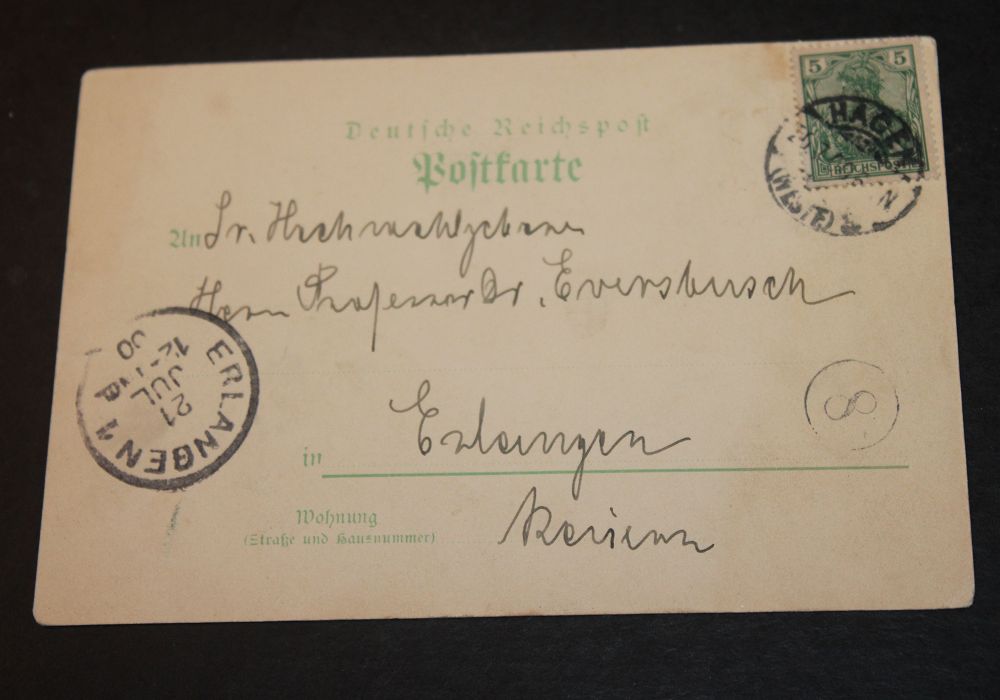 5 5
HAGEN
(WESTF.)
N
REICHSPOST
Deutsche Reichspost
Postkarte
An Sr. Hochwohlgeboren
Herrn Professor Dr. Eversbusch
ERLANGEN 1
21
JUL
12-1 N
00
8
in Erlangen
Wohnung
(Straße und Hausnummer)